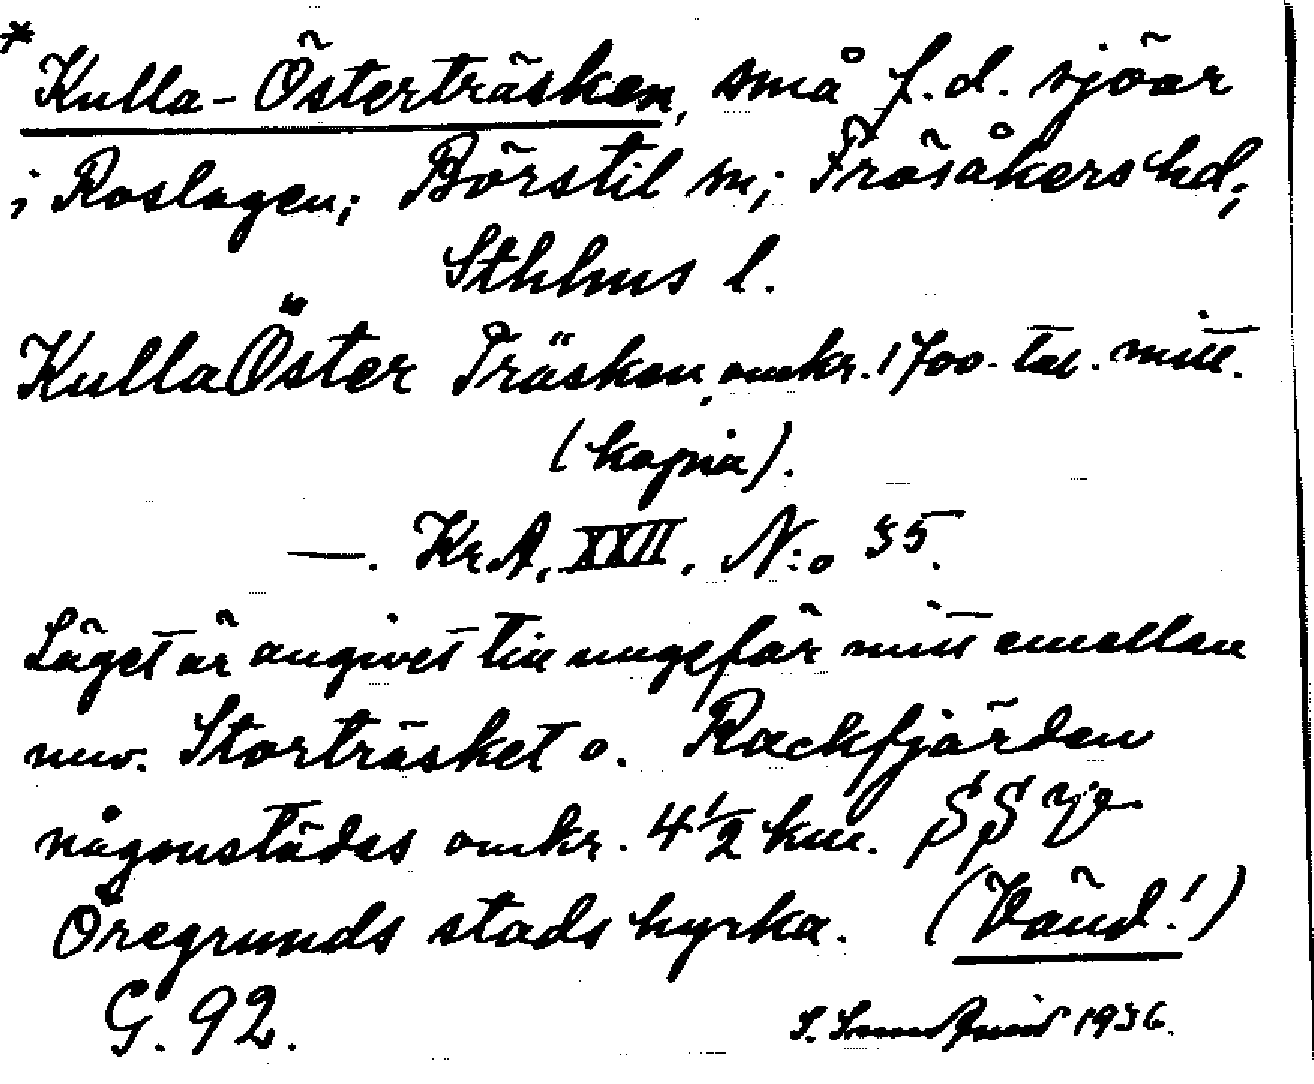 * Kulla-Österträsken, små f.d. sjöar
i Roslagen; Börstil sn; Frösåkers hd;
Sthlms l.
Kulla Öster Träsken, omkr. 1700-tal. mitt.
(kopia).
—. Kr.A. XXVII. N:o 35.
Läget är angivet till ungefär mitt emellan
nuv. Storträsket o. Rackfjärden
någonstädes omkr. 4 1/2 km. SS
Öregrunds stads kyrka. (Vänd!)
G. 92.
S. 1936.